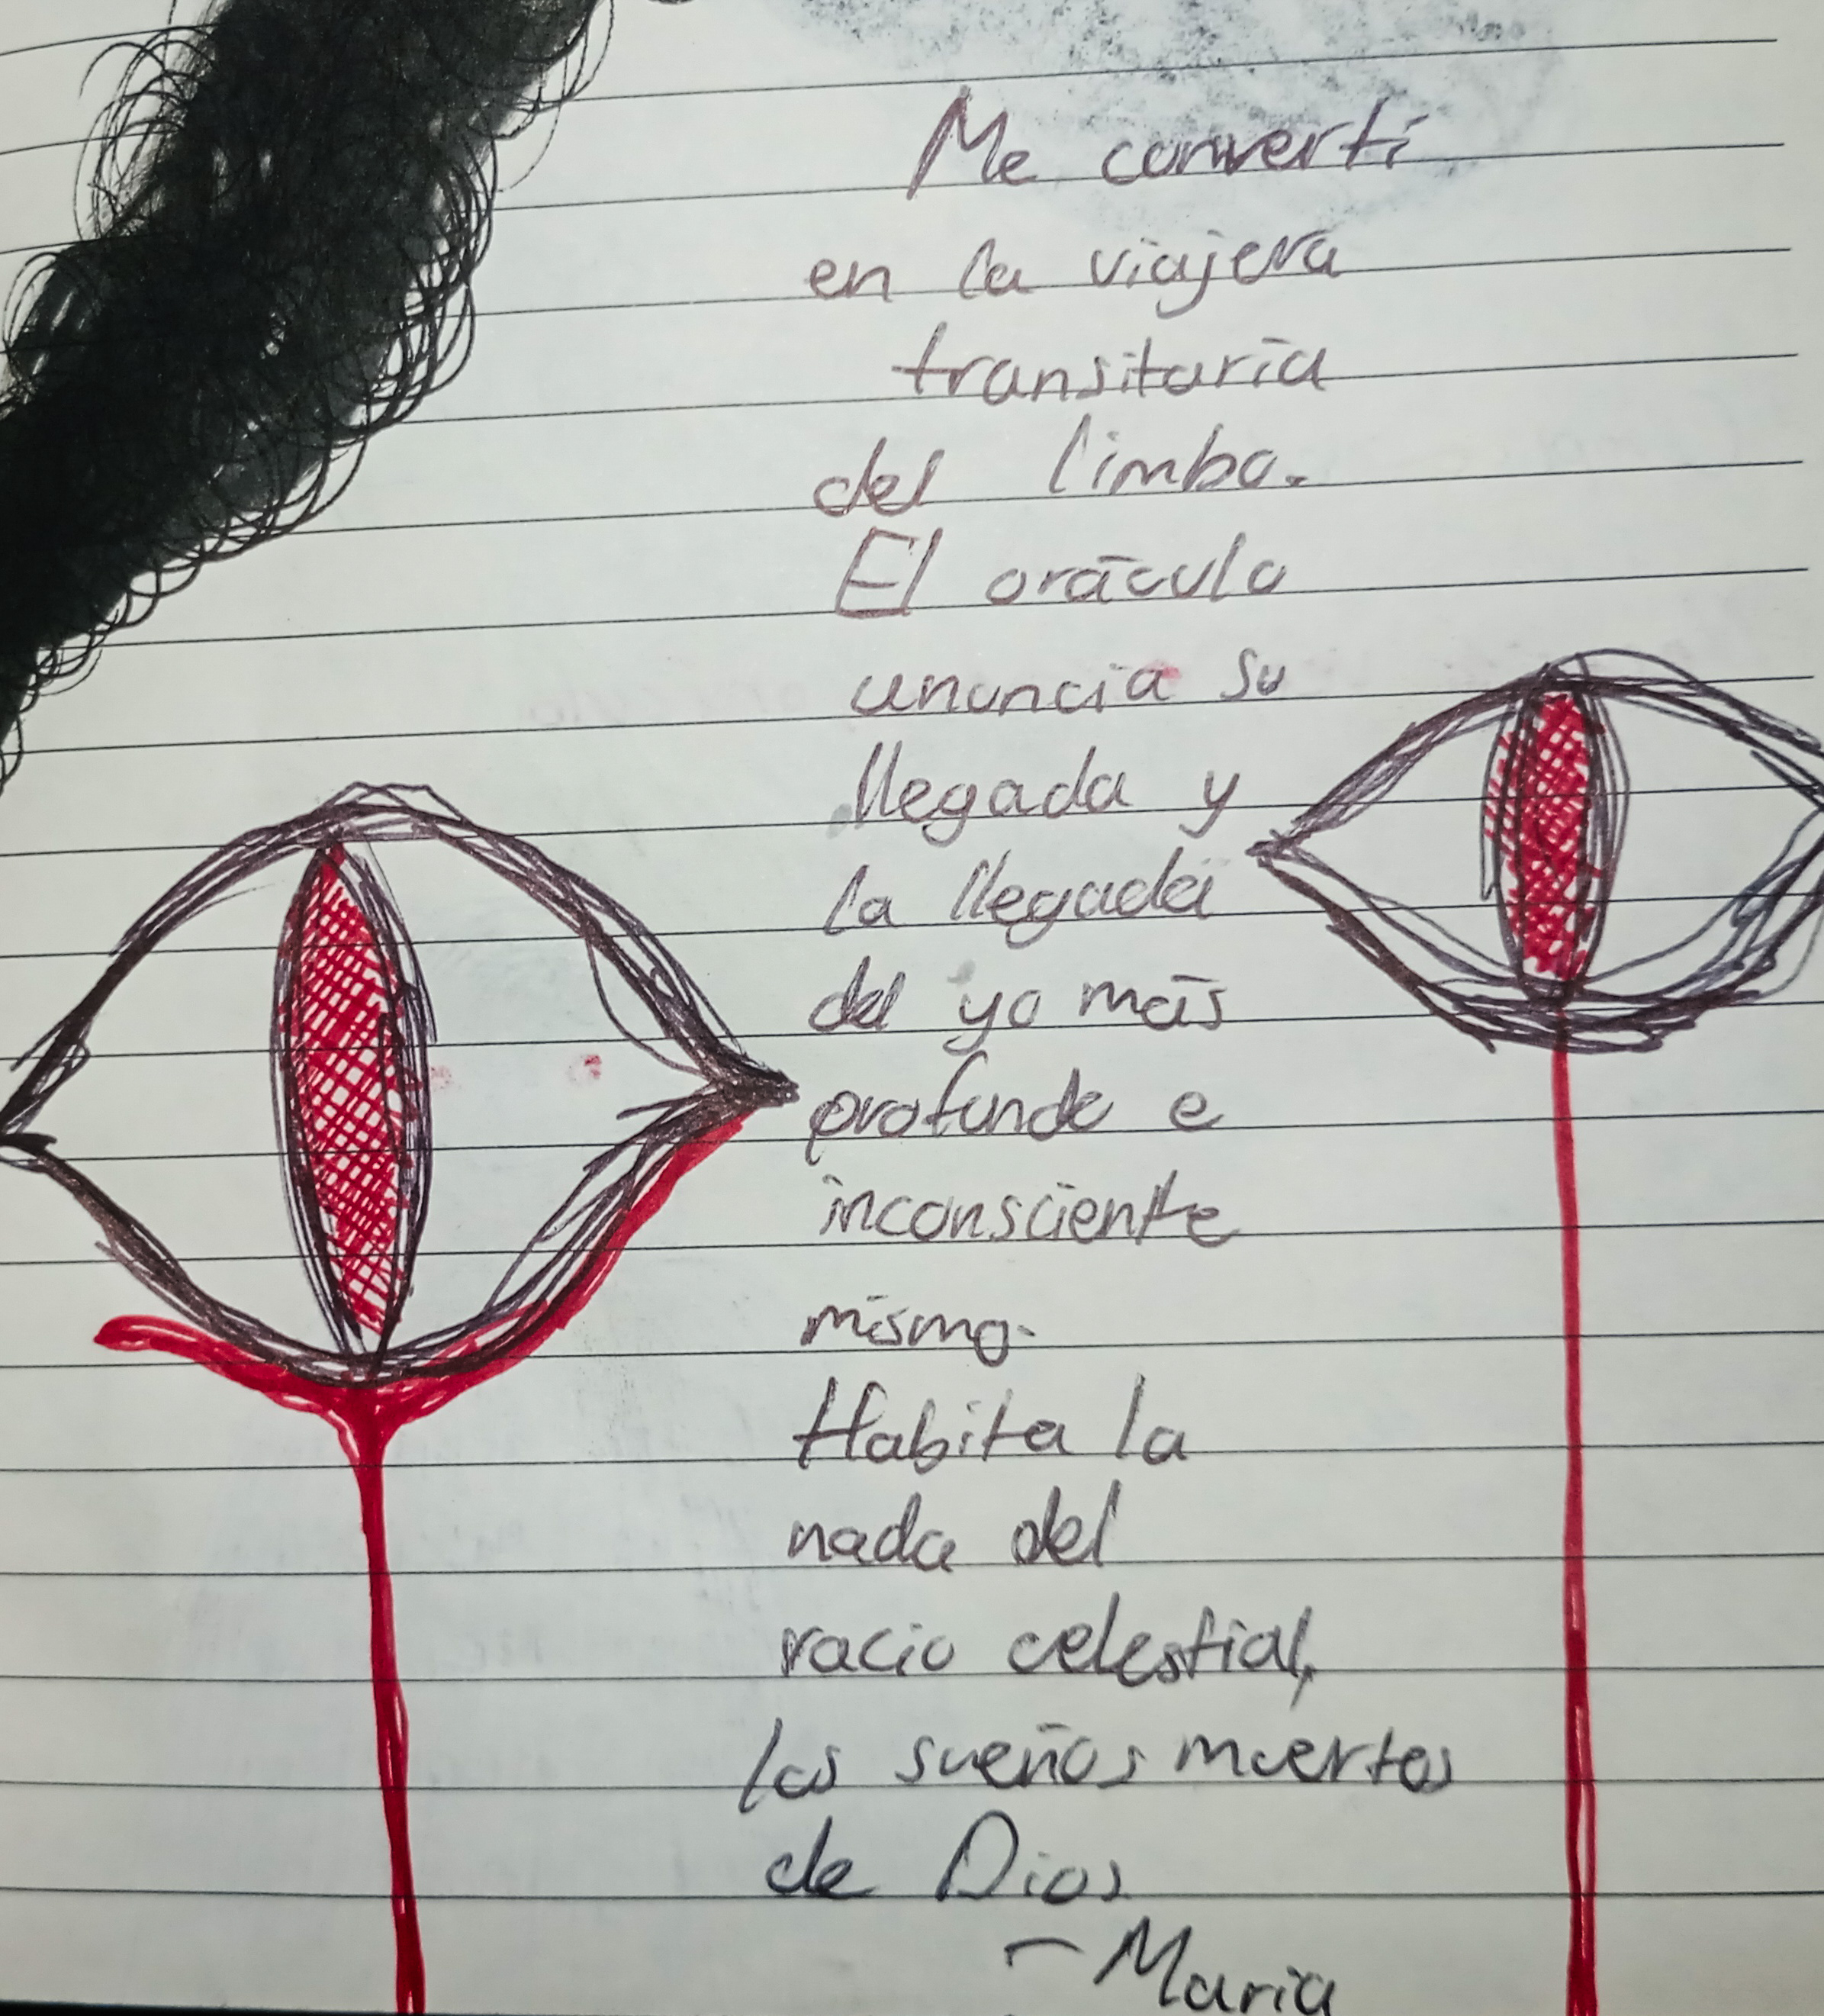 Me convertí
en la viajera
transitoria
del limbo.
El oráculo
anuncia su
llegada y
la llegada
del yo más
profundo e
inconsciente
mismo.
Habita la
nada del
vacio celestial,
los sueños muertos
de Dios
- Maria